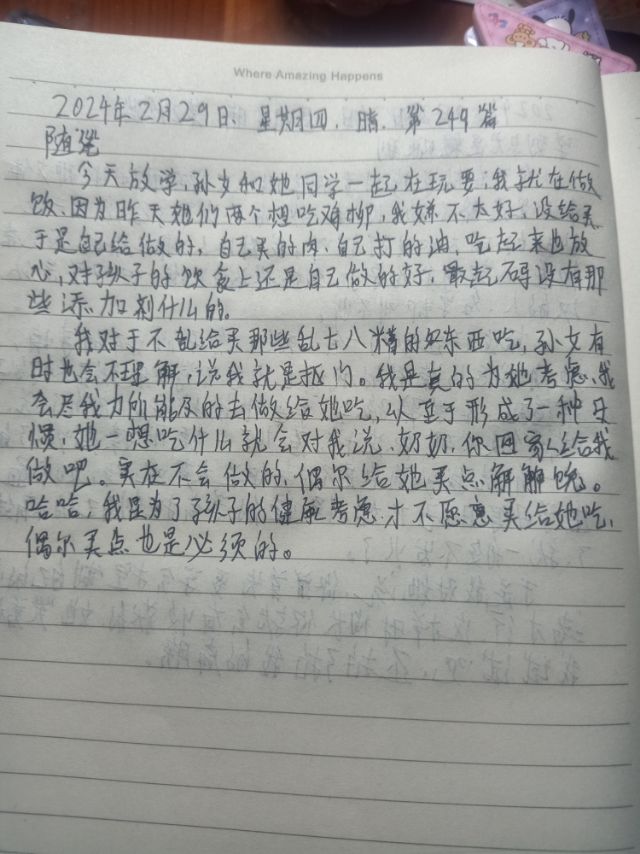 Where Amazing Happens
2024年2月29日、星期四、晴、第249篇
随笔
今天放学,孙女和她同学一起在玩耍,我就在做
饭、因为昨天她们两个想吃鸡柳,我嫌不太好,没给买
于是自己给做的,自己买的肉、自己打的油、吃起来也放
心,对于孩子的饮食上还是自己做的好,最起码没有那
些添加剂什么的。
我对于不乱给买那些乱七八糟的东西吃,孙女有
时也会不理解,说我就是抠门。我是真的为她考虑,我
会尽我力所能及的去做给她吃,以至于形成了一种习
惯,她一想吃什么就会对我说、奶奶,你回家给我
做吧。实在不会做的、偶尔给她买点解解馋。
哈哈,我是为了孩子的健康考虑才不愿意买给她吃,
偶尔买点也是必须的。